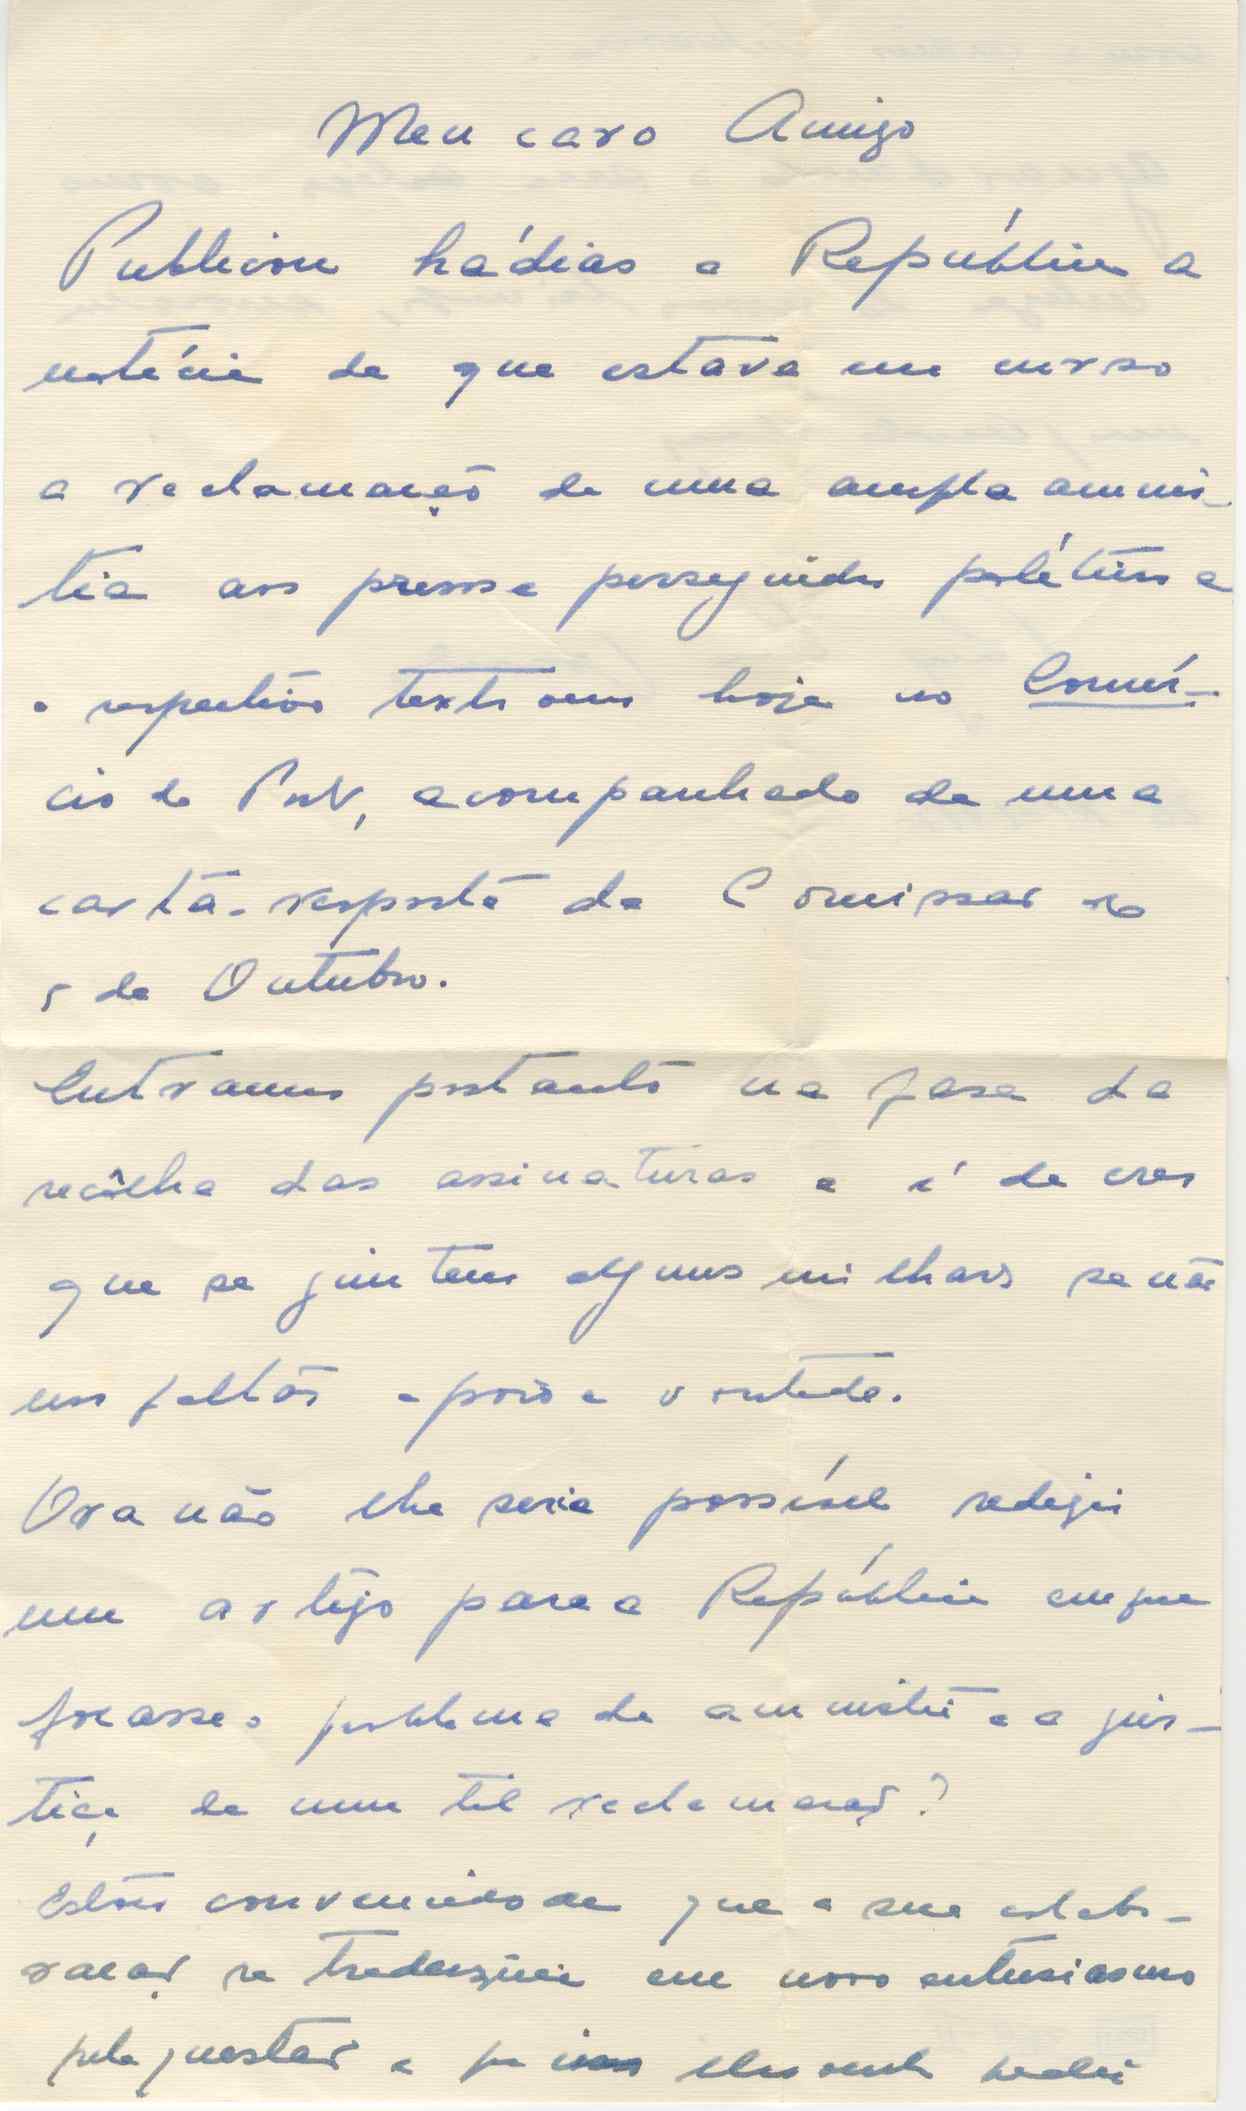 Meu caro Amigo
Publicou há dias a República a
notícia de que estava em curso
a reclamação de uma ampla amnis-
tia aos presos e perseguidos políticos e
o respectivo texto vem hoje no Comér-
cio do Porto, acompanhado de uma
carta-resposta da Comissão do
5 de Outubro.
Entramos portanto na fase da
recôlha das assinaturas e é de crer
que se juntem alguns milhares se não
nos faltar apoio e vontade.
Ora não lhe seria possível redigir
um artigo para a República em que
focasse o problema da amnistia e a jus-
tiça de uma tal reclamação?
Estou convencido de que a sua colabo-
ração se traduziria em novo entusiasmo
pela questão e